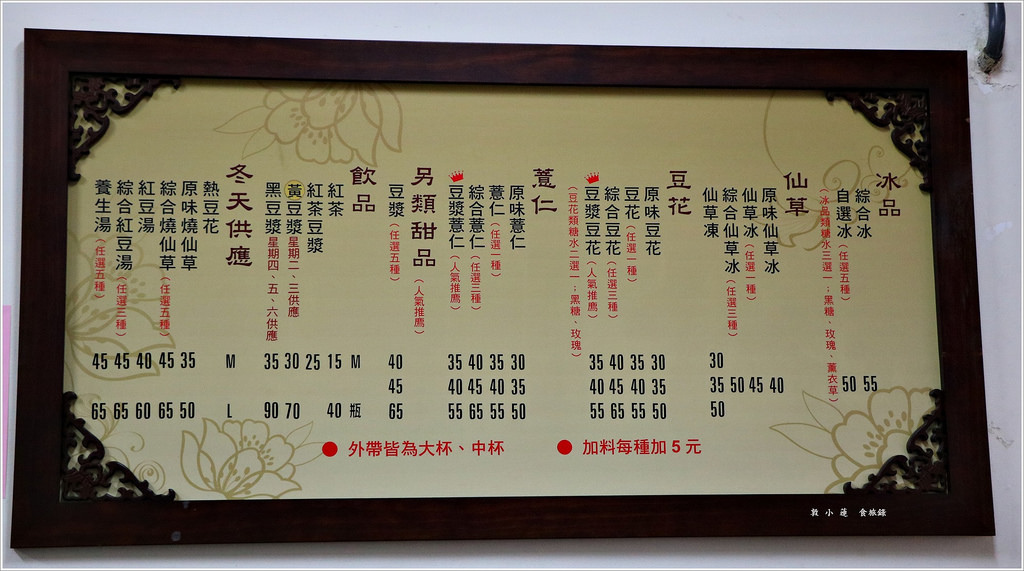 冰品
綜合冰
自選冰（任選五種）
（冰品類糖水三選一：黑糖、玫瑰、薰衣草）
55
50
仙草
原味仙草冰
仙草冰（任選一種）
綜合仙草冰（任選三種）
仙草凍
40
45
50
30
35
50
豆花
原味豆花
豆花（任選一種）
綜合豆花（任選三種）
豆漿豆花（人氣推薦）
（豆花類糖水二選一：黑糖、玫瑰）
30 35 50
35 40 55
40 45 65
35 40 55
薏仁
原味薏仁
薏仁（任選一種）
綜合薏仁（任選三種）
豆漿薏仁（人氣推薦）
30 35 50
35 40 55
40 45 65
35 40 55
另類甜品（人氣推薦）
豆漿（任選五種）
40 45 65
飲品 M 瓶
紅茶 15 40
紅茶豆漿 25
黃豆漿星期二、三供應 30 70
黑豆漿星期四、五、六供應 35 90
冬天供應 M L
熱豆花
原味燒仙草 35 50
綜合燒仙草（任選五種） 45 65
紅豆湯 40 60
綜合紅豆湯（任選三種） 45 65
養生湯（任選五種） 45 65
● 外帶皆為大杯、中杯
● 加料每種加 5 元
敦小蓮 食旅錄